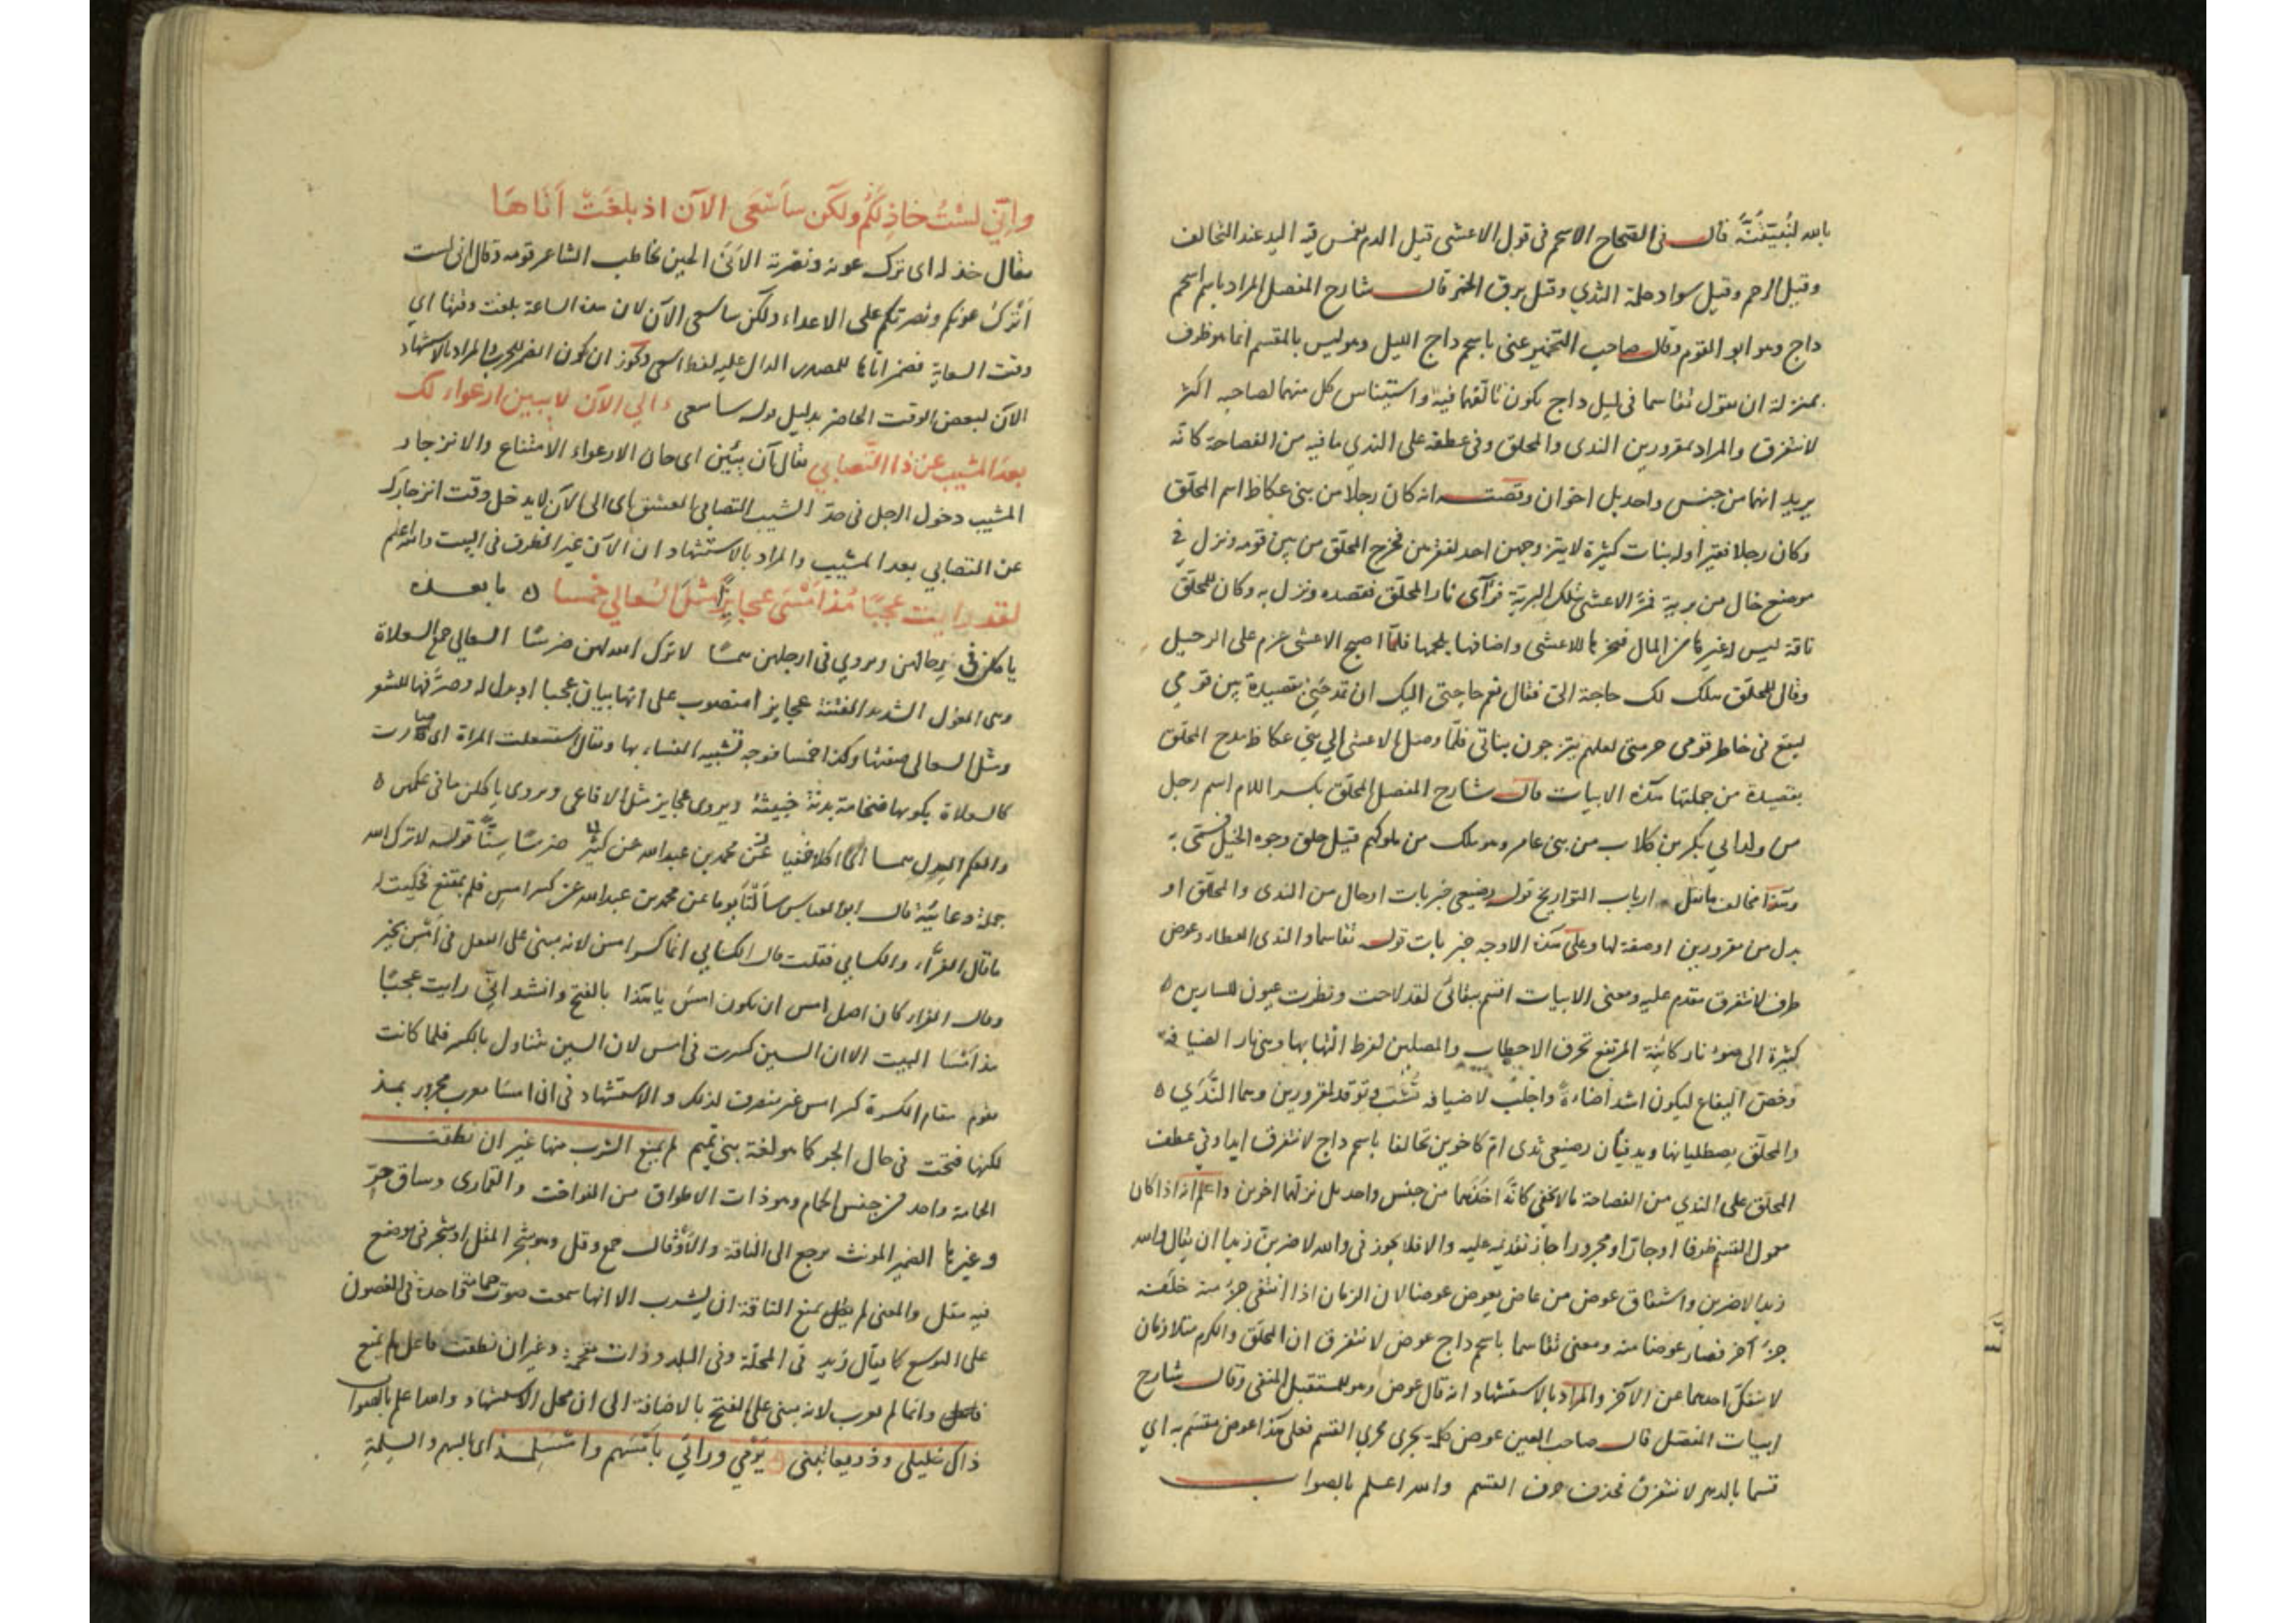 بالله لنبعيتنه قال في الصحاح الاسحم في قول الاعشى قيل الدم يغمس فيه اليد عند التحالف
وقيل الرحم وقيل سواد حلمة الثدي وقيل برق الخمر قال شارح المفصل المراد باسم اسحم
داج وهو ابو القوم وقال صاحب التخمير عنى باسحم داج الليل وهو ليس بالمقسم انما هو ظرف
بمنزلة ان تقول تقاسما في ليل داج يكون تالفهما فيه واستيناس كل منهما لصاحبه اكثر
لا نتفرق والمراد بمقرورين الندى والمحلق وفي عطفه على الندي ما فيه من الفصاحة كانه
يريد انهما من جنس واحد بل اخوان وقصته انه كان رجلا من بني عكاظ اسم المحلق
وكان رجلا فقيرا وله بنات كثيرة لا يتزوجهن احد لفقرهن فخرج المحلق من بين قومه ونزل في
موضع خال من برية فمر الاعشى بتلك البرية فرآى نار المحلق فقصده ونزل به وكان للمحلق
ناقة ليس له غيرها من المال فنحرها للاعشى واضافها بلحمها فلما اصبح الاعشى عزم على الرحيل
وقال للمحلق هل لك حاجة الي فقال نعم حاجتي اليك ان تمدحني بقصيدة بين قومي
ليقع في خاطر قومي حرمتي لعلهم يتزوجون بناتي فلما وصل الاعشى الي بني عكاظ مدح المحلق
بقصيدة من جملتها هذه الابيات قال شارح المفصل المحلق بكسر اللام اسم رجل
من ولد ابي بكر بن كلاب من بني عامر وهو ملك من ملوكهم قيل حلق وجوه الخيل فسمى به
وهذا مخالف ما نقل ارباب التواريخ قوله رضيعي خبربات او حال من الندى والمحلق او
بدل من مقرورين او صفة لها وعلى هذه الاوجه خبر بات قوله تقاسما والندى العطاء وعوض
ظرف لا نتفرق مقدم عليه ومعنى الابيات اقسم ببقائي لقد لاحت ونظرت عيون للسارين ه
كثيرة الى ضوء نار كائنة المرتفع تحرق الاحطاب والمصلين لفرط التهابها وهي نار الضيافة
وخص اليفاع ليكون اشد اضاءة واجلب لاضيافه تشب وتوقد لمقرورين وهما الندي ه
والمحلق يصطليانها ويدفيان رضيعي ثدى ام كاخوين تحالفا باسحم داج لا نتفرق ابدا وفي عطف
المحلق على الندي من الفصاحة ما لا يخفى كانه اخذهما من جنس واحد بل نزلهما اخوين واعلم انه اذا كان
معمول القسم ظرفا او جارا ومجرورا جاز تقديمه عليه والا فلا يجوز في والله لاضربن زيدا ان يقال والله
زيدا لاضربن واشتقاق عوض من عاض يعوض عوضا لان الزمان اذا انتفى جزء منه خلفه
جزء آخر فصار عوضا منه ومعنى تقاسما باسحم داج عوض لا نتفرق ان المحلق والكرم متلازمان
لا ينفك احدهما عن الآخر والمراد بالاستشهاد انه قال عوض وهو للمستقبل المنفي وقال شارح
ابيات المفصل قال صاحب العين عوض كلمة يجرى مجرى القسم فعلى هذا عوض مقسم به اي
قسما بالدهر لا نتفرق فحذف حرف القسم والله اعلم بالصواب
واني لست خاذلكم ولكن ساسعى الآن اذ بلغت اناها
يقال خذله اى ترك عونه ونصرته الآن الحين يخاطب الشاعر قومه وقال اني لست
اترك عونكم ونصرتكم على الاعداء ولكن ساسعى الآن لان هذه الساعة بلغت وقتها اي
وقت السعاية فضمير اناها للمصدر الدال عليه لفظ اسعى ويجوز ان يكون الضمير للحرب والمراد بالاستشهاد
الآن لبعض الوقت الحاضر بدليل قوله ساسعى االي الآن لا يبين ارعواء لك
بعد المشيب عن ذا التصابي يقال آن يئين اى حان الارعواء الامتناع والانزجار
المشيب دخول الرجل في حد الشيب التصابي العشق اى الى الآن لا يدخل وقت انزجارك
عن التصابي بعد المشيب والمراد بالاستشهاد ان الآن غير الظرف في البيت والله اعلم
لقد رايت عجبا مذ امسى عجايزا مثل السعالي خمسا ه ما بعده
ياكلن في رحالهن ويروي في ارجلهن همسا لا ترك الله لهن ضرسا السعالي جمع السعلاة
وهي الغول الشديد الفتنة عجايز امنصوب على انها بيان عجبا او بدل له وصرفها للشعر
ومثل السعالى صفتها وكذا خمسا فوجه تشبيه النساء بها ويقال استسعلت المراة اى صارت
كالسعلاة يكونها ضخامة بدنة خبيثة ويروى عجايز مثل الافاعي ويروى ياكلن ما في عكمهن ه
والعكم العدل همسا اكلا خفيا عن محمد بن عبدالله عن كثير ضرسا سنا قوله لا ترك الله
جملة دعائية قال ابو العباس سالنا يوما عن محمد بن عبدالله عن كسر امس فلم يقنع فحكيت له
ما قال الفراء والكسايي فقلت قال الكسايي انما كسر امس لانه مبنى على الفعل في امس بخير
وقال الفراء كان اصل امس ان يكون امس يا هذا بالفتح وانشد اني رايت عجبا
مذ امسا البيت الا ان السين كسرت في امس لان السين يتناول بالكسر فلما كانت
تقوم مقام الكسرة كسر امس غير منصرف لذلك والاستشهاد في ان امسا معرب مجرور بمذ
لكنها فتحت في حال الجر كما هو لغة بني تميم لم يمنع الشرب منها غير ان نطقت
الحمامة واحد من جنس الحمام وهو ذات الاطواق من الفواخت والقمارى وساق حر
وغيرها الضمير المونث يرجع الى الناقة والاوقال جمع وقل وهو شجر المقل او شجر في موضع
فيه مقل والمعنى لم يمنع الناقة ان يشرب الا انها سمعت صوت حمامة واحدة في الغصون
على التوسع كما يقال زيد في المحلة وفي البلد وذات مقحمة وغير ان نطقت فاعل لم يمنع
وانما لم يعرب لانه مبنى على الفتح بالاضافة الى ان محل الاستشهاد والله اعلم بالصواب
ذاك خليلى وذو يعاتبنى يرمي ورائي بامسهم وامسلمه اى بالسهم والسلمة